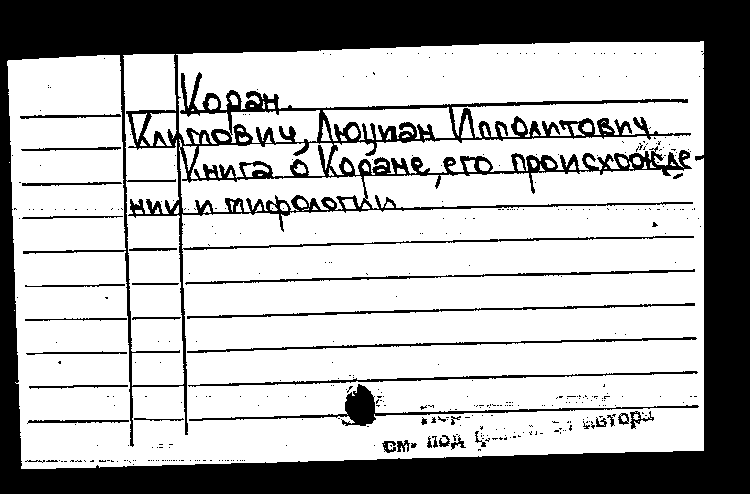 Коран.
Климович, Люциан Ипполитович.
Книга о Коране, его происхожде-
нии и мифологии
см. под автора